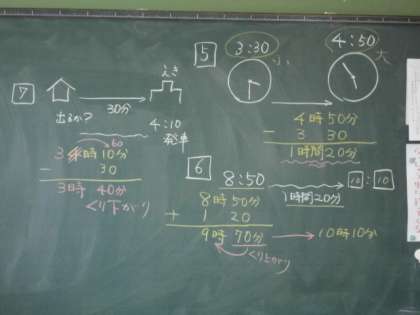 5
3:30
小
4:50
大
4時50分
- 3 30
1時間20分
7
えき
30分
出るか?
4:10
発車
60
3 4時10分
- 30
3時40分
くり下がり
6
8:50
1時間20分
10:10
8時50分
+ 1 20
9時70分
10時10分
くり上がり